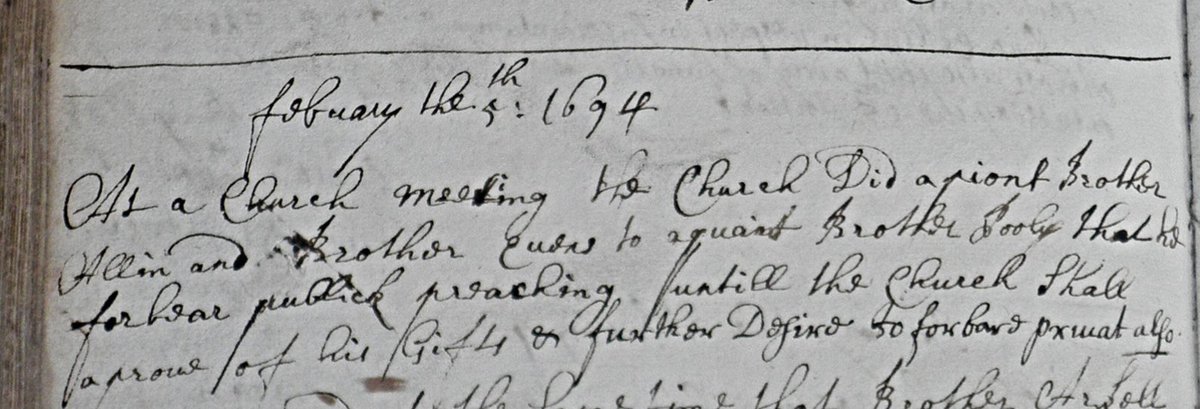 febuary the 5th: 1694
At a Church meeting the Church Did apiont Brother
Allin and Brother Evens to aquaint Brother Pooly that he
forbear publick preaching untill the Church Shall
aprove of his Gifts & further Desire to forbare privat also.
the same time that Brother